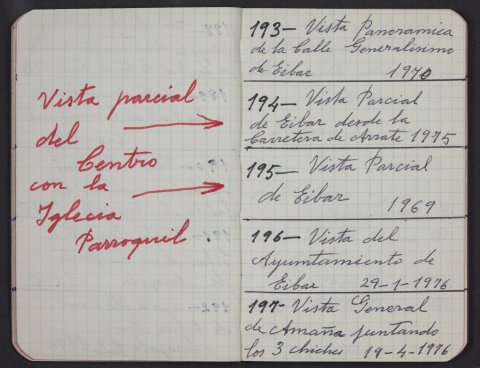 Vista parcial
del
Centro
con la
Iglecia
Parroquil.
193- Vista Panoramica
de la Calle Generalisimo
de Eibar 1970
194- Vista Parcial
de Eibar desde la
Carretera de Arrate 1975
195- Vista Parcial
de Eibar
1969
196- Vista del
Ayuntamiento de
Eibar 29-1-1976
197- Vista General
de Amaña juntando
los 3 chiches 19-4-1976